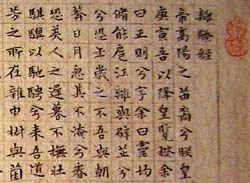 離騷經
帝高陽之苗裔兮朕皇
庚寅吾以降皇覽揆余
曰正則兮字余曰靈均
脩能扈江離與辟芷兮
兮恐年歲之不
莽日月忽其不淹兮春
恐美人之遲暮不撫壯
騏驥以馳騁兮來吾道
芳之所在雜申椒與菌